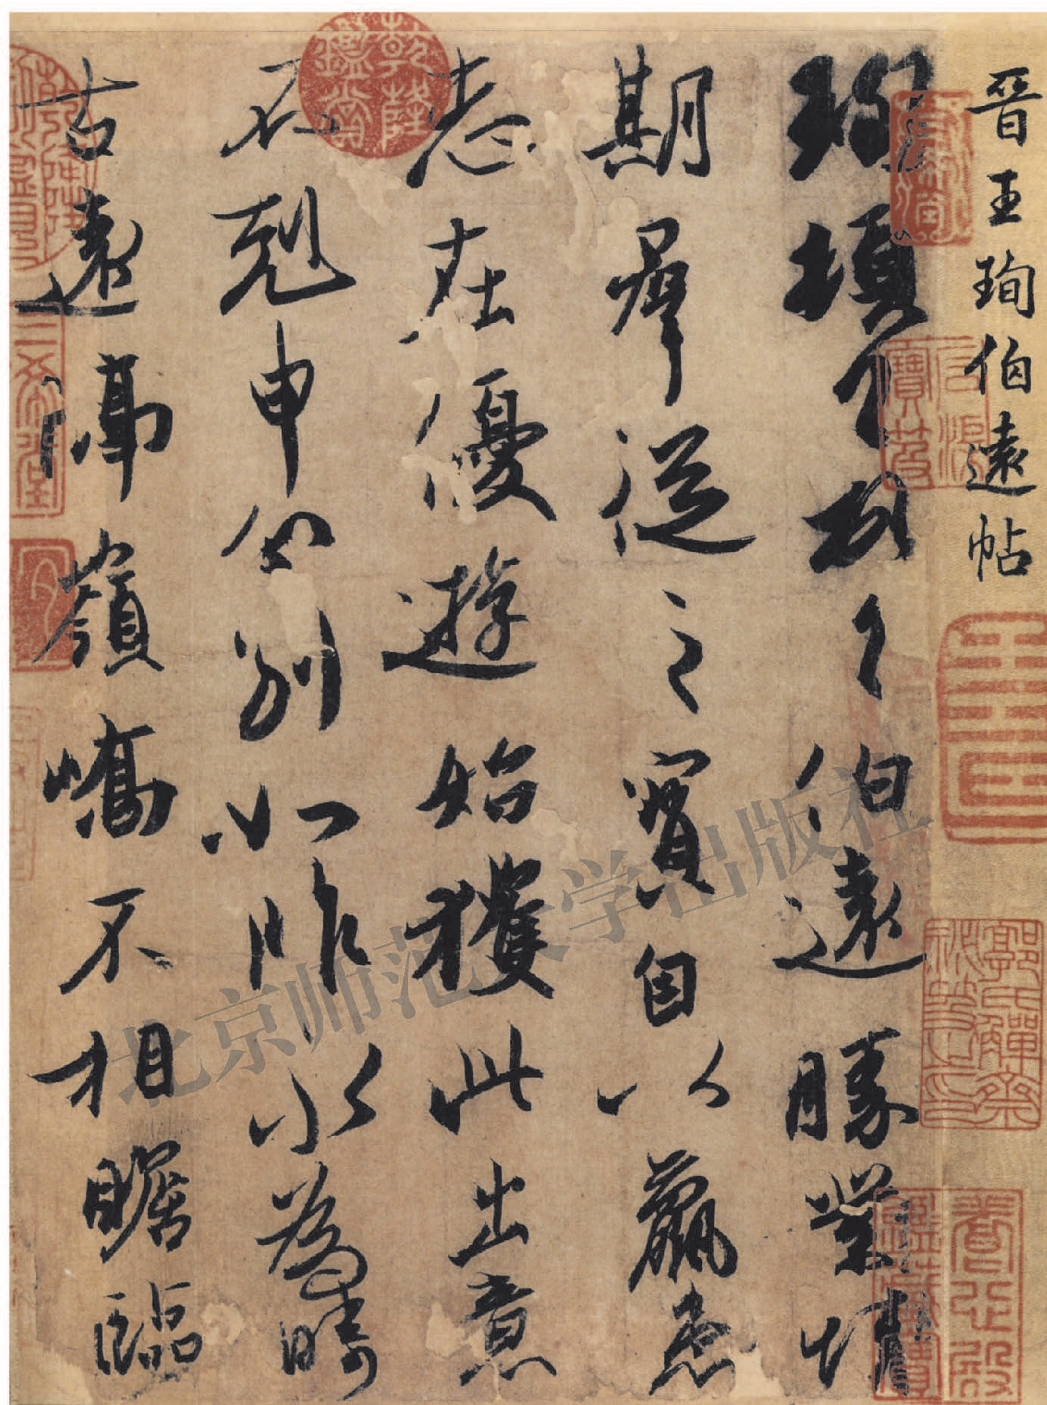 晉王珣伯遠帖
珣頓首頓首伯遠勝業情
期群從之寶自以羸患
志在優遊始獲此出意
不剋申分別如昨永為疇
古遠隔嶺嶠不相瞻臨
乾隆鑑賞
北京师范大学出版社